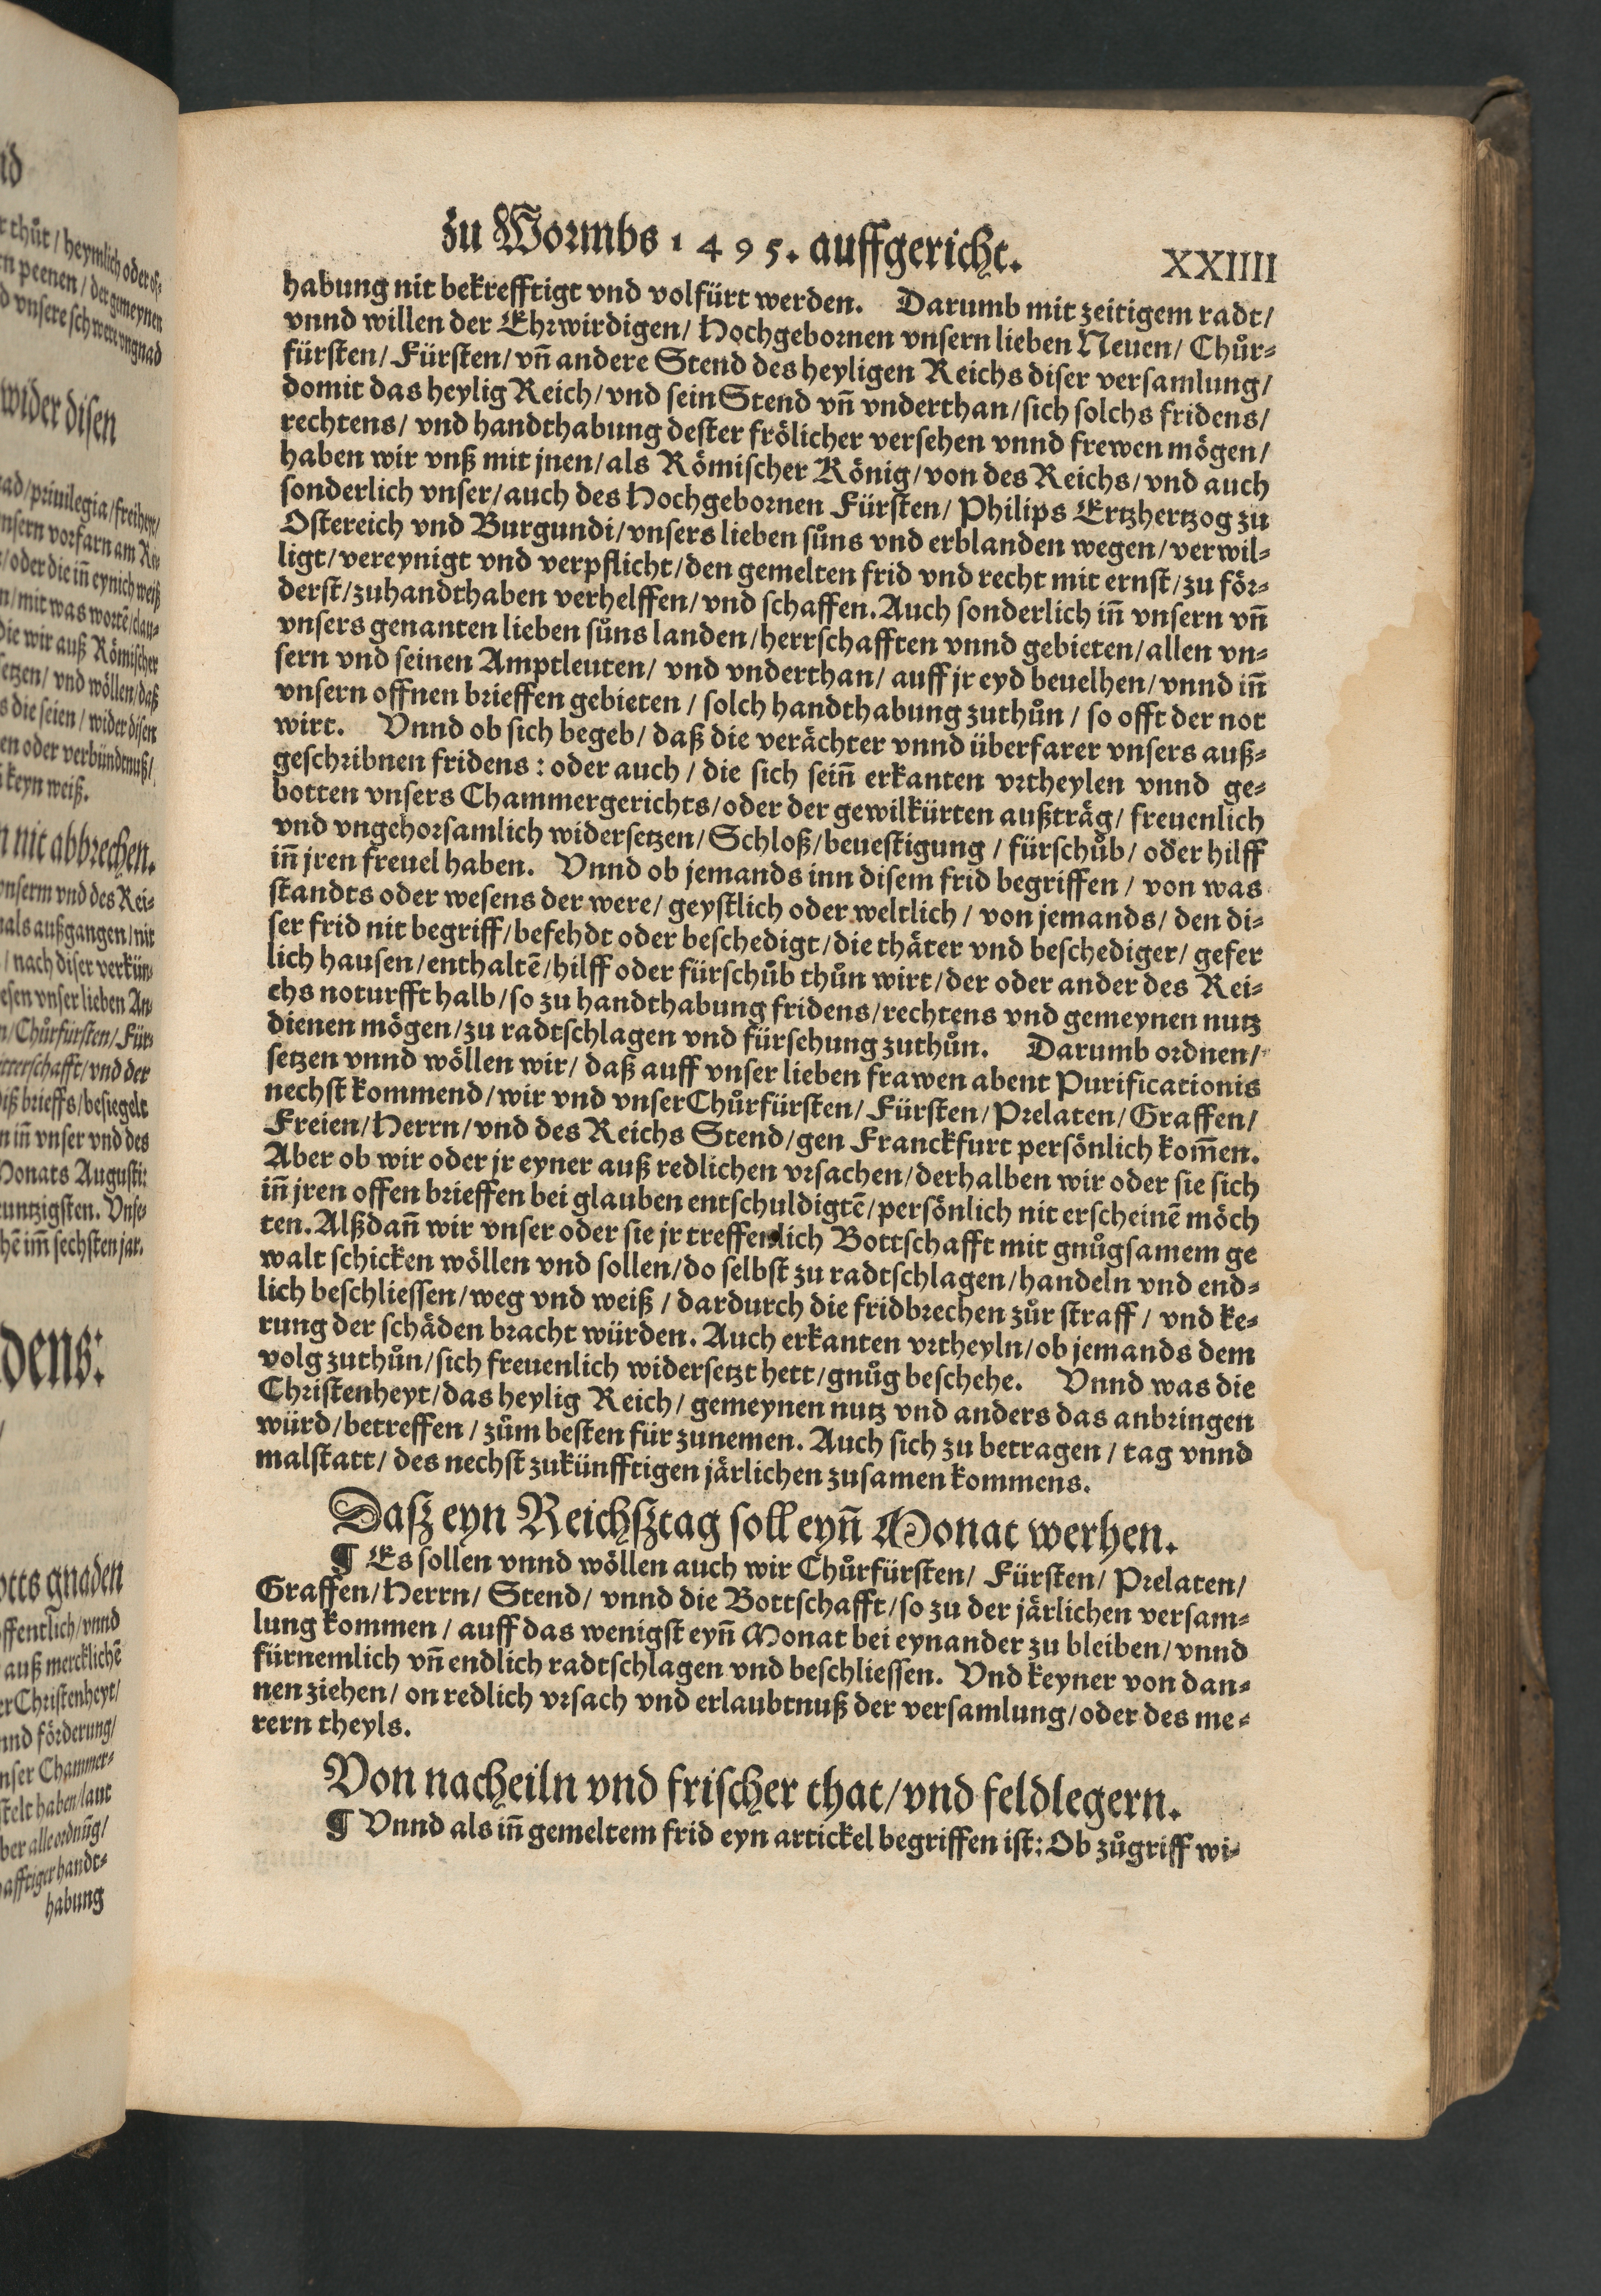 zu Wormbs 1495. auffgericht.
XXIIII
habung nit bekrefftigt vnd volfürt werden. Darumb mit zeitigem radt/
vnnd willen der Ehrwirdigen/ Hochgebornen vnsern lieben Neuen/ Chůr⸗
fürsten/ Fürsten/ vñ andere Stend des heyligen Reichs diser versamlung/
domit das heylig Reich/ vnd sein Stend vñ vnderthan/ sich solchs fridens/
rechtens/ vnd handthabung dester frölicher versehen vnnd frewen mögen/
haben wir vnß mit jnen/ als Römischer König/ von des Reichs/ vnd auch
sonderlich vnser/ auch des Hochgebornen Fürsten/ Philips Ertzhertzog zu
Ostereich vnd Burgundi/ vnsers lieben sůns vnd erblanden wegen/ verwil⸗
ligt/ vereynigt vnd verpflicht/ den gemelten frid vnd recht mit ernst/ zu för⸗
derst/ zuhandthaben verhelffen/ vnd schaffen. Auch sonderlich iñ vnsern vñ
vnsers genanten lieben sůns landen/ herrschafften vnnd gebieten/ allen vn⸗
sern vnd seinen Amptleuten/ vnd vnderthan/ auff jr eyd beuelhen/ vnnd iñ
vnsern offnen brieffen gebieten/ solch handthabung zuthůn/ so offt der not
wirt. Vnnd ob sich begeb/ daß die verächter vnnd überfarer vnsers auß⸗
geschribnen fridens: oder auch/ die sich seiñ erkanten vrtheylen vnnd ge⸗
botten vnsers Chammergerichts/ oder der gewilkürten außträg/ freuenlich
vnd vngehorsamlich widersetzen/ Schloß/ beuestigung/ fürschůb/ oder hilff
iñ jren freuel haben. Vnnd ob jemands inn disem frid begriffen/ von was
standts oder wesens der were/ geystlich oder weltlich/ von jemands/ den di⸗
ser frid nit begriff/ befehdt oder beschedigt/ die thäter vnd beschediger/ gefer
lich hausen/ enthaltẽ/ hilff oder fürschůb thůn wirt/ der oder ander des Rei⸗
chs noturfft halb/ so zu handthabung fridens/ rechtens vnd gemeynen nutz
dienen mögen/ zu radtschlagen vnd fürsehung zuthůn. Darumb ordnen/
setzen vnnd wöllen wir/ daß auff vnser lieben frawen abent Purificationis
nechst kommend/ wir vnd vnser Chůrfürsten/ Fürsten/ Prelaten/ Graffen/
Freien/ Herrn/ vnd des Reichs Stend/ gen Franckfurt persönlich kom̃en.
Aber ob wir oder jr eyner auß redlichen vrsachen/ derhalben wir oder sie sich
iñ jren offen brieffen bei glauben entschuldigtẽ/ persönlich nit erscheinẽ möch
ten. Alßdañ wir vnser oder sie jr treffenlich Bottschafft mit gnůgsamem ge
walt schicken wöllen vnd sollen/ do selbst zu radtschlagen/ handeln vnd end⸗
lich beschliessen/ weg vnd weiß/ dardurch die fridbrechen zůr straff/ vnd ke⸗
rung der schäden bracht würden. Auch erkanten vrtheyln/ ob jemands dem
volg zuthůn/ sich freuenlich widersetzt hett/ gnůg beschehe. Vnnd was die
Christenheyt/ das heylig Reich/ gemeynen nutz vnd anders das anbringen
würd/ betreffen/ zům besten für zunemen. Auch sich zu betragen/ tag vnnd
malstatt/ des nechst zukünfftigen järlichen zusamen kommens.
Dasz eyn Reichsztag soll eyñ Monat werhen.
¶ Es sollen vnnd wöllen auch wir Chůrfürsten/ Fürsten/ Prelaten/
Graffen/ Herrn/ Stend/ vnnd die Bottschafft/ so zu der järlichen versam⸗
lung kommen/ auff das wenigst eyñ Monat bei eynander zu bleiben/ vnnd
fürnemlich vñ endlich radtschlagen vnd beschliessen. Vnd keyner von dan⸗
nen ziehen/ on redlich vrsach vnd erlaubtnuß der versamlung/ oder des me⸗
rern theyls.
Von nacheiln vnd frischer that/ vnd feldlegern.
¶ Vnnd als iñ gemeltem frid eyn artickel begriffen ist: Ob zůgriff wi⸗